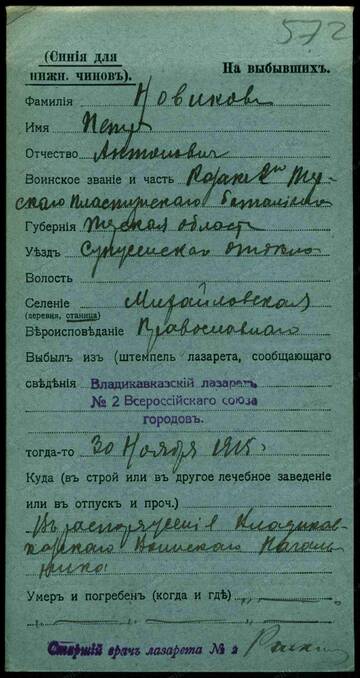 572
(Синія для
нижн. чиновъ).
На выбывшихъ.
Фамилія Новиковъ
Имя Петръ
Отчество Антоновичъ
Воинское званіе и часть Козакъ 2го Тер-
скаго Пластунскаго баталіона
Губернія Терская область
Уѣздъ Сунженскаго отдѣла
Волость
Селеніе Михайловская
(деревня, станица)
Вѣроисповѣданіе Православнаго
Выбылъ изъ (штемпель лазарета, сообщающаго
свѣдѣнія Владикавказскій лазаретъ
№ 2 Всероссійскаго союза
городовъ.
тогда-то 30 Ноября 1915.
Куда (въ строй или въ другое лечебное заведеніе
или въ отпускъ и проч.)
Въ распоряженіе Владикав-
казскаго Воинскаго Началь
ника
Умеръ и погребенъ (когда и гдѣ)
Старшій врачъ лазарета № 2